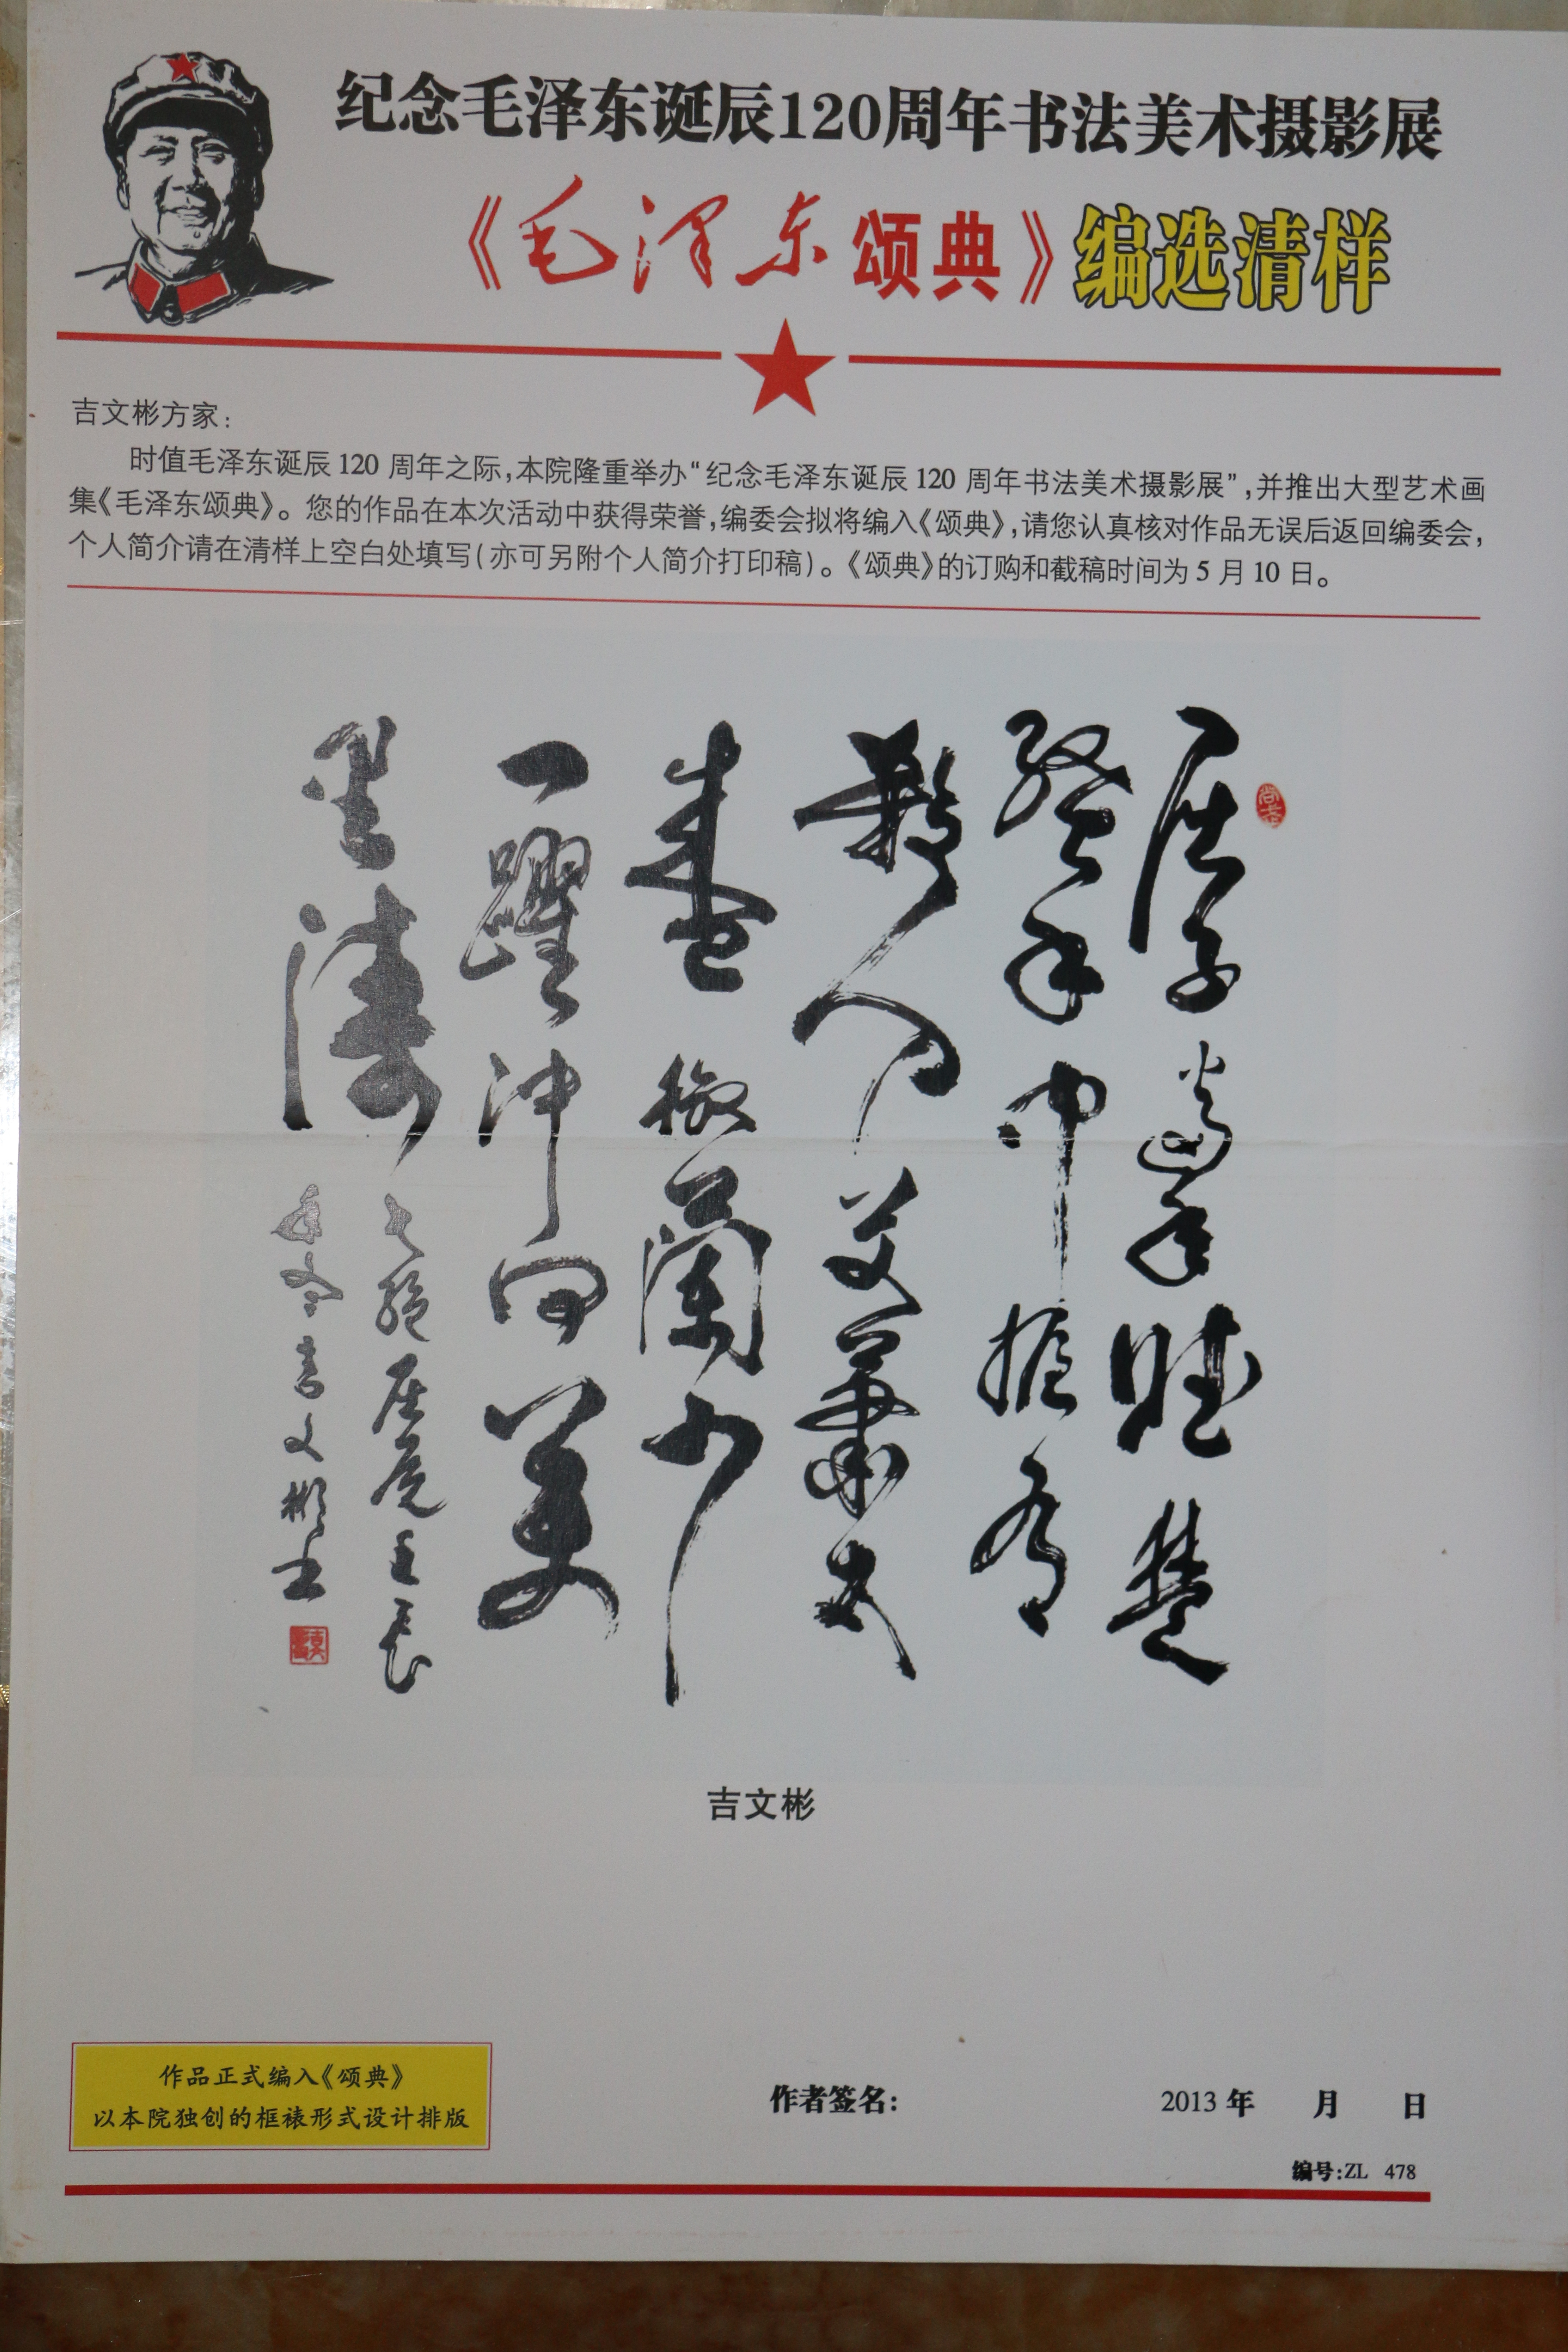 纪念毛泽东诞辰120周年书法美术摄影展
《毛泽东颂典》编选清样
吉文彬方家：
时值毛泽东诞辰120周年之际，本院隆重举办“纪念毛泽东诞辰120周年书法美术摄影展”，并推出大型艺术画
集《毛泽东颂典》。您的作品在本次活动中获得荣誉，编委会拟将编入《颂典》，请您认真核对作品无误后返回编委会，
个人简介请在清样上空白处填写（亦可另附个人简介打印稿）。《颂典》的订购和截稿时间为5月10日。
屈子當年賦楚
騷手中握有
殺人刀艾蕭太
盛椒蘭少
一躍冲向萬
里濤
七絕屈原壬辰
年冬吉文彬書
吉文彬
作品正式编入《颂典》
以本院独创的框裱形式设计排版
作者签名：
2013年 月 日
编号:ZL 478